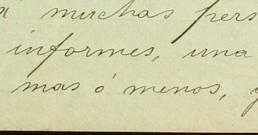 a muchas pers
informes, una
mas ó menos, y